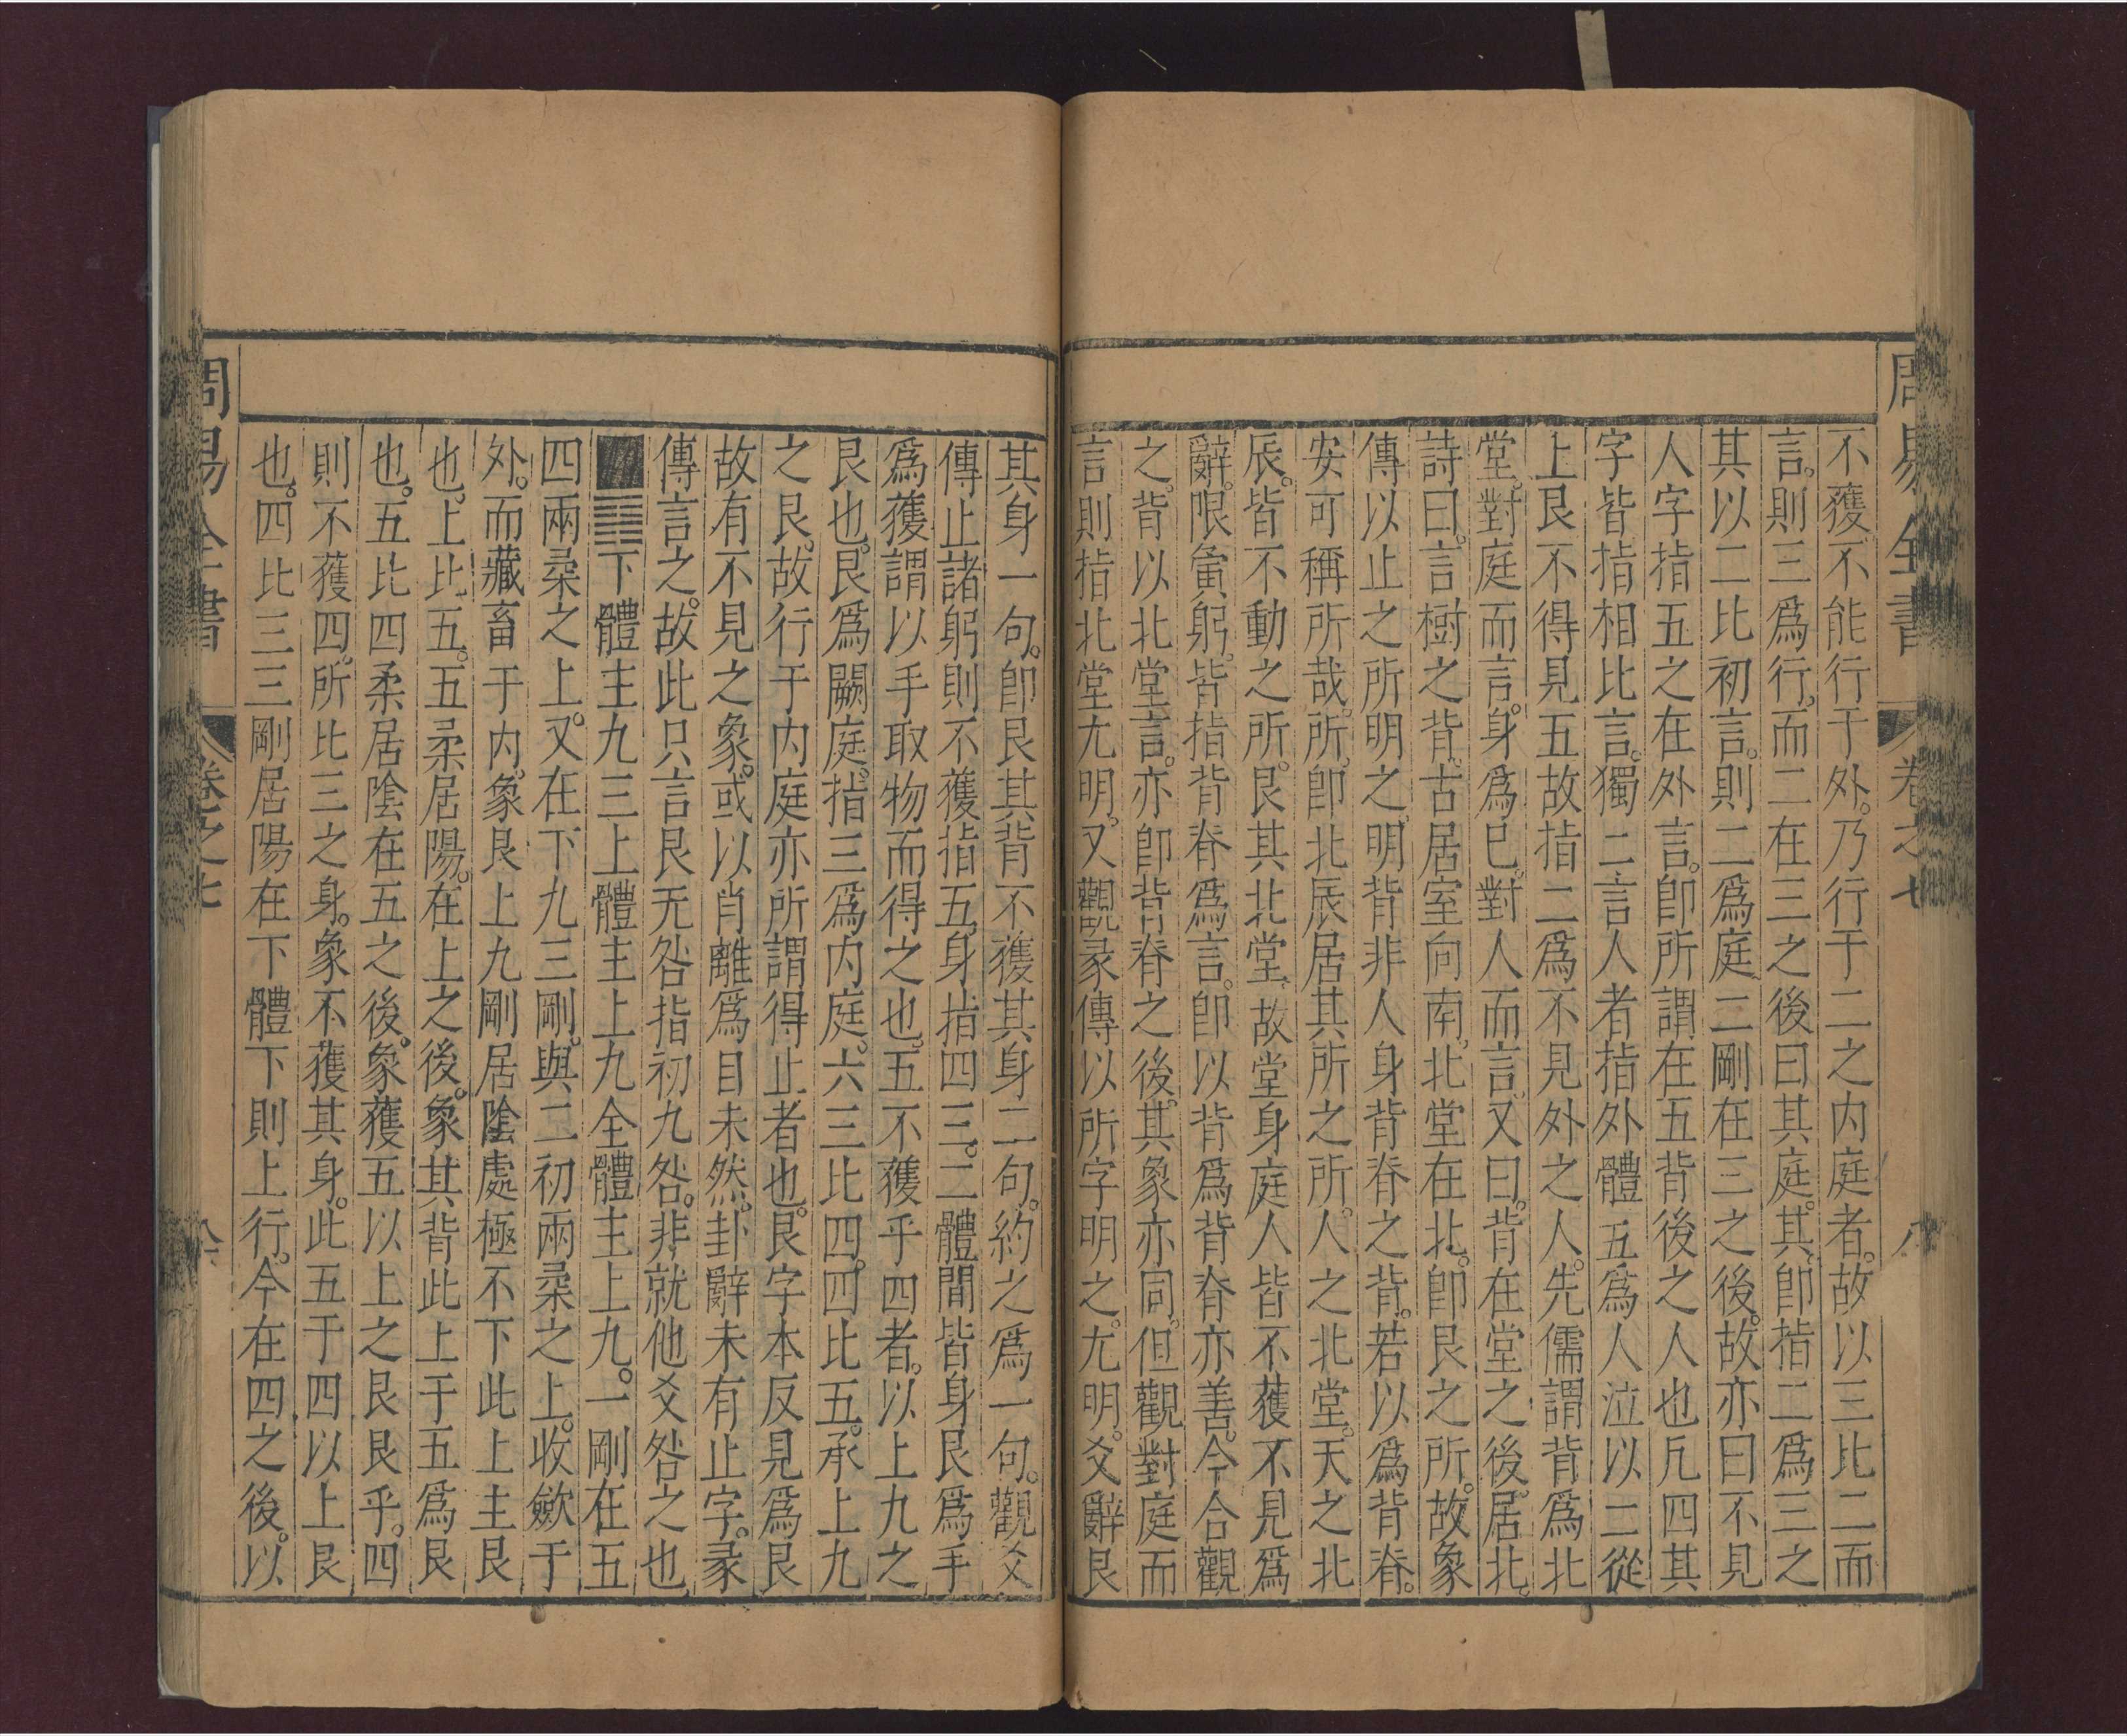 周易全書 卷之七 八
不獲不能行于外。乃行于二之内庭者。故以三比二而
言。則三爲行。而二在三之後曰其庭。其。卽指二爲三之
其以二比初言。則二爲庭三剛在三之後。故亦曰不見
人字指五之在外言。卽所謂在五背後之人也凡四其
字皆指相比言。獨二言人者指外體五爲人泣以二從
上艮不得見五故指二爲不見外之人。先儒謂背爲北
堂。對庭而言。身爲巳。對人而言。又曰。背在堂之後。居北。
詩曰。言樹之背。古居室向南。北堂在北。卽艮之所。故象
傳以止之所明之。明背非人身背脊之背。若以爲背脊。
安可稱所哉。所。卽北辰居其所之所。人之北堂。天之北
辰。皆不動之所。艮其北堂。故堂身庭人皆不獲不見爲
辭。限夤躬。皆指背脊爲言。卽以背爲背脊亦善。今合觀
之。背以北堂言。亦卽背脊之後。其象亦同。但觀對庭而
言則指北堂尤明。又觀彖傳以所字明之。尤明。爻辭艮
其身一句。卽艮其背不獲其身二句。約之爲一句。觀爻
傳止諸躬則不獲指五。身指四三。二體間皆身艮爲手
爲獲謂以手取物而得之也。五不獲乎四者。以上九之
艮也。艮爲闕庭。指三爲内庭。六三比四。四比五。承上九
之艮。故行于内庭亦所謂得止者也。艮字本反見爲艮
故有不見之象。或以肖離爲目未然。卦辭未有止字。彖
傳言之。故此只言艮无咎指初九咎。非就他爻咎之也
䷳下體主九三上體主上九全體主上九。一剛在五
四兩柔之上。又在下九三剛。與二初兩柔之上。收斂于
外。而藏畜于内。象艮上九剛居陰處極不下此上主艮
也。上比五。五柔居陽。在上之後。象其背此上于五爲艮
也。五比四柔居陰在五之後。象獲五以上之艮艮乎。四
則不獲四。所比三之身。象不獲其身。此五于四以上艮
也。四比三三剛居陽在下體下則上行。今在四之後。以
周易全書 卷之七